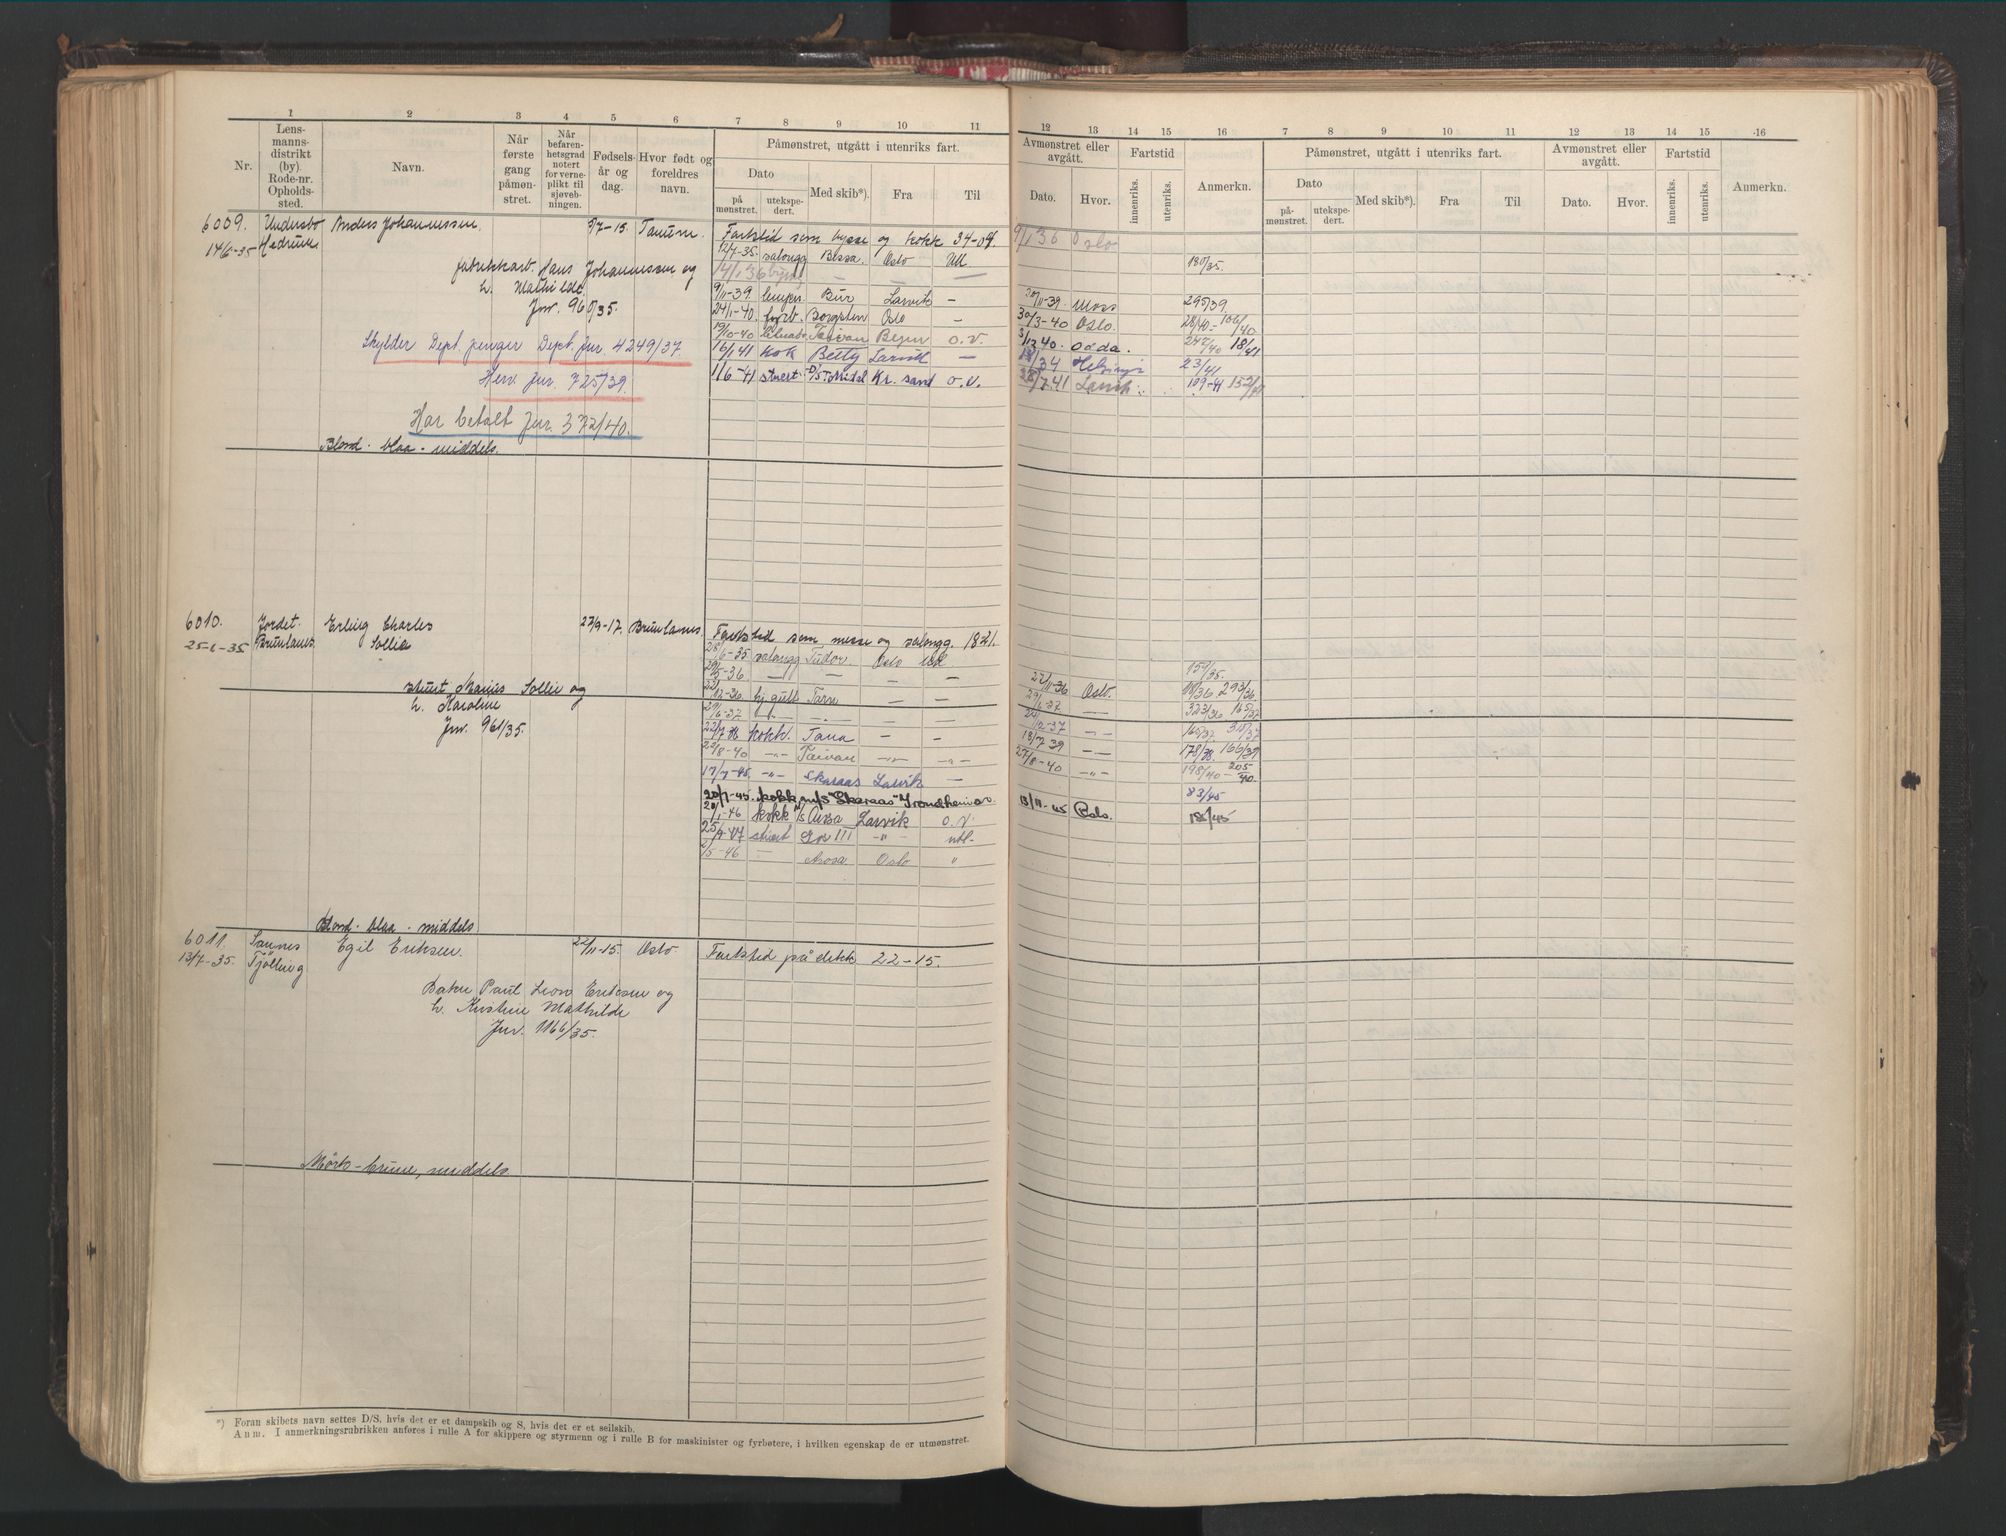 1 2 3 4 5 6 7 8 9 10 11
Nr.
Lensmannsdistrikt (by). Rode-nr. Opholdssted.
Navn.
Når første gang påmønstret.
Når befarenhetsgrad notert for verneplikt til sjøvebningen.
Fødselsår og dag.
Hvor født og foreldres navn.
Påmønstret, utgått i utenriks fart.
Dato
på mønstret.
utekspedert.
Med skib*).
Fra
Til
12 13 14 15 16 7 8 9 10 11 12 13 14 15 16
Avmønstret eller avgått.
Dato.
Hvor.
Fartstid
innenriks.
utenriks.
Anmerkn.
Påmønstret, utgått i utenriks fart.
Dato
påmønstret.
utekspedert.
Med skib*).
Fra
Til
Avmønstret eller avgått.
Dato.
Hvor.
Fartstid
innenriks.
utenriks.
Anmerkn.
6009. Undersbo Anders Johannessen. 7-15. Tanum.
14/6-35 Hedrum
Fartstid som bysse og kokk 34-09.
9/1 36 Oslo
12/7-35. salongg Bessa. Oslo Utl
180/35.
fabrikkarb. Hans Johannessen og
14/1 36
h. Mathilde
9/11-39. Bur Larvik –
20/11-39 Moss 295/39.
Jnr. 960/35.
24/1-40. Borgsten Oslo –
30/3-40 Oslo. 28/40- 106/40
19/10-40 Taivan o.v.
40. Odda. 18/41
Skylder Dept. penger Dept. Jnr. 4249/37.
16/1 41 kok Betty Larvik –
23/41
Herv. Jnr. 725/39.
11/6-41 stuert Kr. sand o.v.
28/7.41 Larvik 109-41
Har betalt Jnr. 372/40.
Blond. blaa. middels.
6010. Jordet. Erling Charles 23/9-17. Brunlanes.
25-6-35. Brunlanes. Sollie
Fartstid som messe og salongg. 18-21.
28/6-35 salongg Tudor. Oslo Utl.
159/35.
5-36 – – – –
22/11-36 Oslo. 293/36.
stuert Marius Sollie og
12-36. Tarn – –
29/6-37 – 323/36 165/37
h. Karoline
29/6-37 – – – –
12-37 – 165/37
Jnr. 961/35.
22/7 38 kokk. Tana – –
18/7 39 – 178/38. 166/39
8-40 –"– Taivan –"– –"–
27/8-40 –"– 198/40- 205/40.
17/7-45. –"– Skaraas Larvik –
83/45
20/7-45. kokk m/s "Skaraas" Trondheim o.v.
13/11-45 Oslo. 186/45
20/1-46 kokk Larvik o.v.
25/9-47 stuert III –"– utl.
2/5-46 – Oslo "
Blond. blaa. middels
6011. Saunes Egil Eriksen. 22/11-15. Oslo
13/7-35. Tjölling
Fartstid på dekk 22-15.
Baker Paul Leon Eriksen og
h. Kristine Mathilde
Jnr. 1166/35.
Mörk-brune, middels.
*) Foran skibets navn settes D/S, hvis det er et dampskib og S, hvis det er et seilskib.
Anm. I anmerkningsrubrikken anføres i rulle A for skippere og styrmenn og i rulle B for maskinister og fyrbøtere, i hvilken egenskap de er utmønstret.